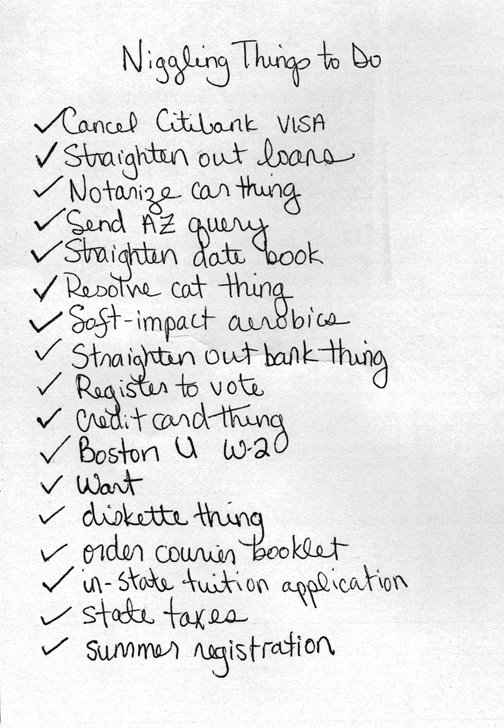 Niggling Things to Do
✓Cancel Citibank VISA
✓Straighten out loans
✓Notarize car thing
✓Send AZ query
✓Straighten date book
✓Resolve cat thing
✓Soft-impact aerobics
✓Straighten out bank thing
✓Register to vote
✓Credit card thing
✓Boston U W-2
✓Wart
✓diskette thing
✓order courier booklet
✓in-state tuition application
✓state taxes
✓summer registration